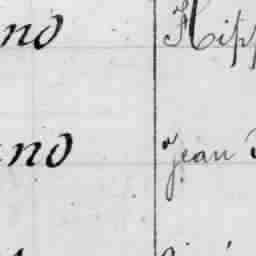 nd Hipp
nd Jean